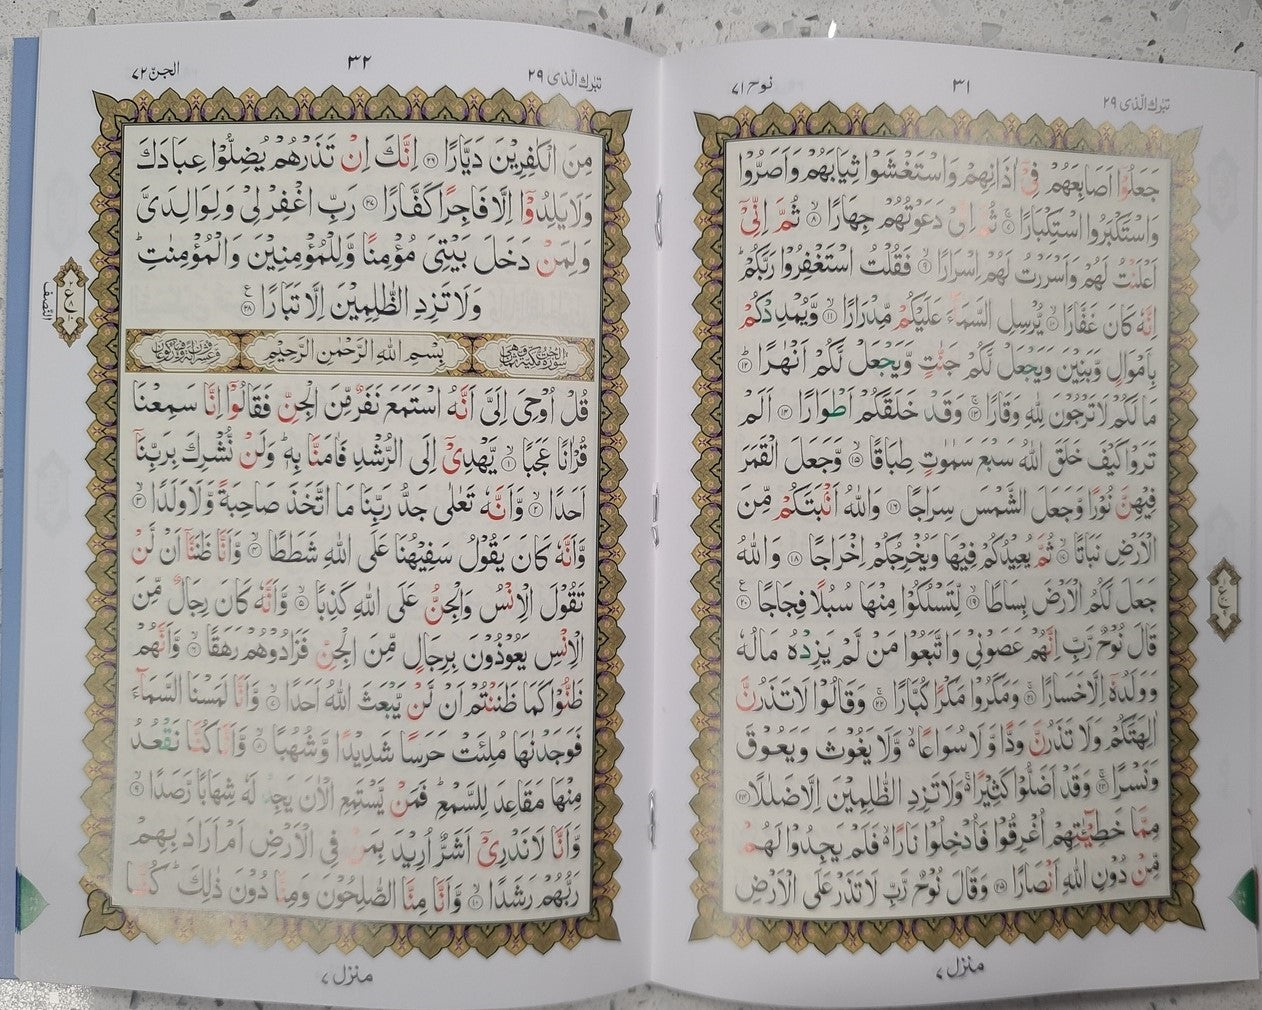 تبٰرك الّذی ۲۹
۳۱
نوح ۷۱
جَعَلُوْۤا اَصَابِعَهُمْ فِیْۤ اٰذَانِهِمْ وَاسْتَغْشَوْا ثِیَابَهُمْ وَاَصَرُّوْا
وَاسْتَكْبَرُوا اسْتِكْبَارًا ۷ ثُمَّ اِنِّیْ دَعَوْتُهُمْ جِهَارًا ۸ ثُمَّ اِنِّیْۤ
اَعْلَنْتُ لَهُمْ وَاَسْرَرْتُ لَهُمْ اِسْرَارًا ۹ فَقُلْتُ اسْتَغْفِرُوْا رَبَّكُمْ
اِنَّهٗ كَانَ غَفَّارًا ۱۰ یُّرْسِلِ السَّمَآءَ عَلَیْكُمْ مِّدْرَارًا ۱۱ وَّیُمْدِدْكُمْ
بِاَمْوَالٍ وَّبَنِیْنَ وَیَجْعَلْ لَّكُمْ جَنّٰتٍ وَّیَجْعَلْ لَّكُمْ اَنْهٰرًا ۱۲
مَا لَكُمْ لَا تَرْجُوْنَ لِلّٰهِ وَقَارًا ۱۳ وَقَدْ خَلَقَكُمْ اَطْوَارًا ۱۴ اَلَمْ
تَرَوْا كَیْفَ خَلَقَ اللّٰهُ سَبْعَ سَمٰوٰتٍ طِبَاقًا ۱۵ وَّجَعَلَ الْقَمَرَ
فِیْهِنَّ نُوْرًا وَّجَعَلَ الشَّمْسَ سِرَاجًا ۱۶ وَاللّٰهُ اَنْۢبَتَكُمْ مِّنَ
الْاَرْضِ نَبَاتًا ۱۷ ثُمَّ یُعِیْدُكُمْ فِیْهَا وَیُخْرِجُكُمْ اِخْرَاجًا ۱۸ وَاللّٰهُ
جَعَلَ لَكُمُ الْاَرْضَ بِسَاطًا ۱۹ لِّتَسْلُكُوْا مِنْهَا سُبُلًا فِجَاجًا ۲۰
قَالَ نُوْحٌ رَّبِّ اِنَّهُمْ عَصَوْنِیْ وَاتَّبَعُوْا مَنْ لَّمْ یَزِدْهُ مَالُهٗ
وَوَلَدُهٗۤ اِلَّا خَسَارًا ۲۱ وَمَكَرُوْا مَكْرًا كُبَّارًا ۲۲ وَقَالُوْا لَا تَذَرُنَّ
اٰلِهَتَكُمْ وَلَا تَذَرُنَّ وَدًّا وَّلَا سُوَاعًا ۙ وَّلَا یَغُوْثَ وَیَعُوْقَ
وَنَسْرًا ۲۳ وَقَدْ اَضَلُّوْا كَثِیْرًا ۚ وَلَا تَزِدِ الظّٰلِمِیْنَ اِلَّا ضَلٰلًا ۲۴
مِمَّا خَطِیْٓـٰٔتِهِمْ اُغْرِقُوْا فَاُدْخِلُوْا نَارًا ۙ فَلَمْ یَجِدُوْا لَهُمْ
مِّنْ دُوْنِ اللّٰهِ اَنْصَارًا ۲۵ وَقَالَ نُوْحٌ رَّبِّ لَا تَذَرْ عَلَی الْاَرْضِ
منزل ۷
تبٰرك الّذی ۲۹
۳۲
الجن ۷۲
مِنَ الْكٰفِرِیْنَ دَیَّارًا ۲۶ اِنَّكَ اِنْ تَذَرْهُمْ یُضِلُّوْا عِبَادَكَ
وَلَا یَلِدُوْۤا اِلَّا فَاجِرًا كَفَّارًا ۲۷ رَبِّ اغْفِرْ لِیْ وَلِوَالِدَیَّ
وَلِمَنْ دَخَلَ بَیْتِیَ مُؤْمِنًا وَّلِلْمُؤْمِنِیْنَ وَالْمُؤْمِنٰتِ
وَلَا تَزِدِ الظّٰلِمِیْنَ اِلَّا تَبَارًا ۲۸
النّصف
بِسْمِ اللّٰهِ الرَّحْمٰنِ الرَّحِیْمِ
قُلْ اُوْحِیَ اِلَیَّ اَنَّهُ اسْتَمَعَ نَفَرٌ مِّنَ الْجِنِّ فَقَالُوْۤا اِنَّا سَمِعْنَا
قُرْاٰنًا عَجَبًا ۱ یَّهْدِیْۤ اِلَی الرُّشْدِ فَاٰمَنَّا بِهٖ ؕ وَلَنْ نُّشْرِكَ بِرَبِّنَاۤ
اَحَدًا ۲ وَّاَنَّهٗ تَعٰلٰی جَدُّ رَبِّنَا مَا اتَّخَذَ صَاحِبَةً وَّلَا وَلَدًا ۳
وَّاَنَّهٗ كَانَ یَقُوْلُ سَفِیْهُنَا عَلَی اللّٰهِ شَطَطًا ۴ وَّاَنَّا ظَنَنَّاۤ اَنْ لَّنْ
تَقُوْلَ الْاِنْسُ وَالْجِنُّ عَلَی اللّٰهِ كَذِبًا ۵ وَّاَنَّهٗ كَانَ رِجَالٌ مِّنَ
الْاِنْسِ یَعُوْذُوْنَ بِرِجَالٍ مِّنَ الْجِنِّ فَزَادُوْهُمْ رَهَقًا ۶ وَّاَنَّهُمْ
ظَنُّوْا كَمَا ظَنَنْتُمْ اَنْ لَّنْ یَّبْعَثَ اللّٰهُ اَحَدًا ۷ وَّاَنَّا لَمَسْنَا السَّمَآءَ
فَوَجَدْنٰهَا مُلِئَتْ حَرَسًا شَدِیْدًا وَّشُهُبًا ۸ وَّاَنَّا كُنَّا نَقْعُدُ
مِنْهَا مَقَاعِدَ لِلسَّمْعِ ؕ فَمَنْ یَّسْتَمِعِ الْاٰنَ یَجِدْ لَهٗ شِهَابًا رَّصَدًا ۹
وَّاَنَّا لَا نَدْرِیْۤ اَشَرٌّ اُرِیْدَ بِمَنْ فِی الْاَرْضِ اَمْ اَرَادَ بِهِمْ
رَبُّهُمْ رَشَدًا ۱۰ وَّاَنَّا مِنَّا الصّٰلِحُوْنَ وَمِنَّا دُوْنَ ذٰلِكَ ؕ كُنَّا
منزل ۷